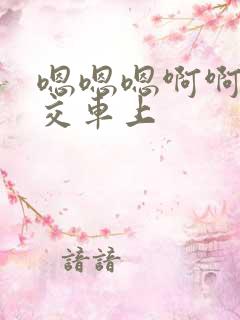 嗯嗯嗯啊啊
交车上
諳諳